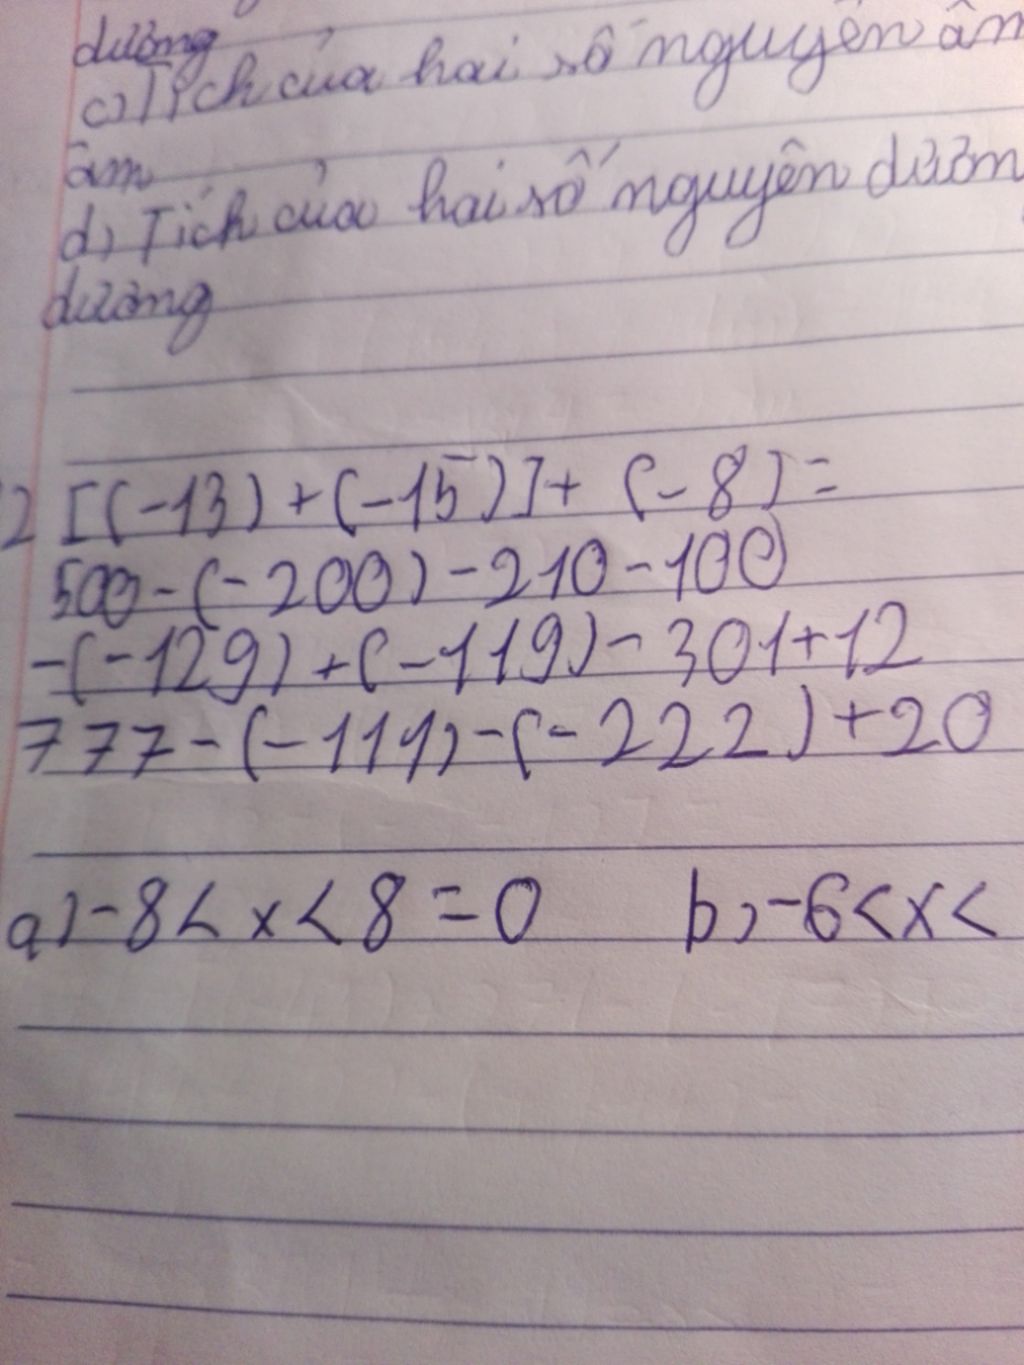 dương
c) Tích của hai số nguyên âm
âm
d) Tích của hai số nguyên dươn
dương
2 [(-13) + (-15)] + (-8) =
500 - (-200) - 210 - 100
- (-129) + (-119) - 301 + 12
777 - (-111) - (-222) + 20
a) -8 < x < 8 = 0 b) -6 < x <